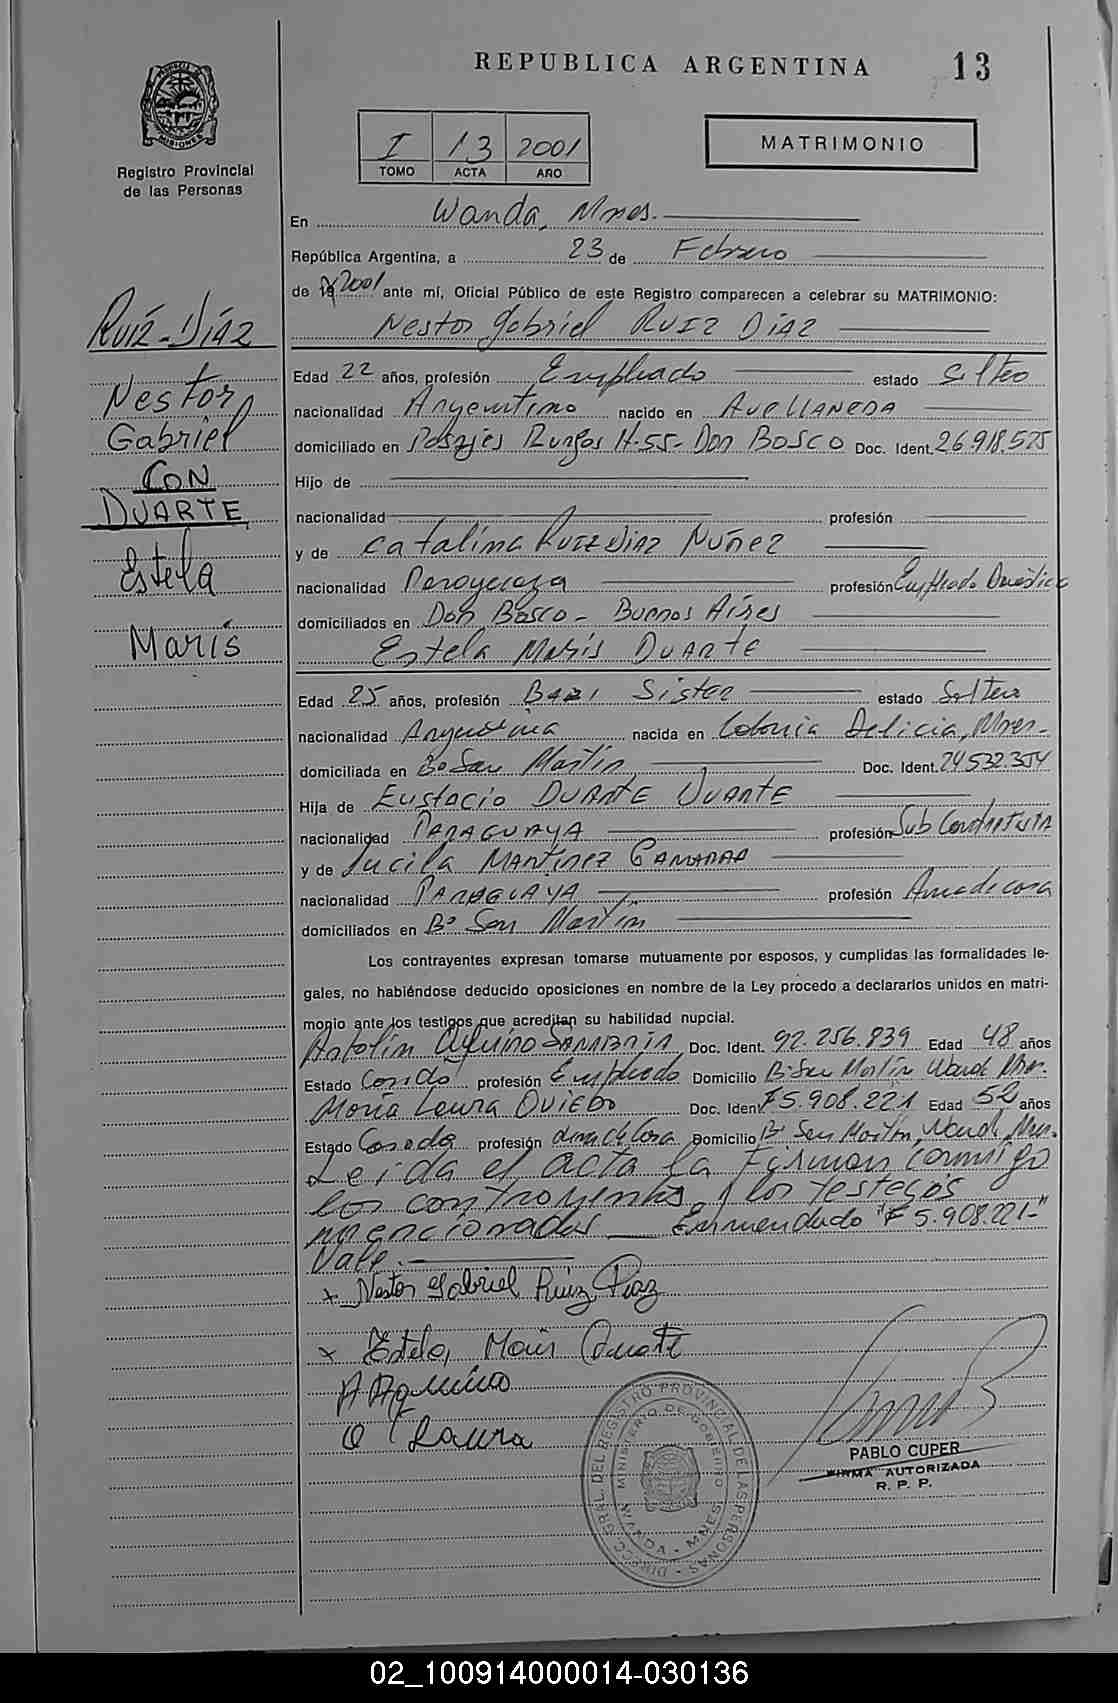 REPUBLICA ARGENTINA 13
PROVINCIA DE MISIONES
Registro Provincial
de las Personas
I 13 2001
TOMO ACTA AÑO
MATRIMONIO
En Wanda, Mnes.
República Argentina, a 23 de Febrero
de 19 2001 ante mí, Oficial Público de este Registro comparecen a celebrar su MATRIMONIO:
Nestor Gabriel RUIZ DIAZ
RUIZ-DIAZ
Nestor
Gabriel
CON
DUARTE
Estela
Maris
Edad 22 años, profesión Empleado estado Soltero
nacionalidad Argentino nacido en AVELLANEDA
domiciliado en Pasajes Burgos H-55- Don BOSCO Doc. Ident. 26.918.525
Hijo de
nacionalidad profesión
y de Catalina RUIZ DIAZ NÚÑEZ
nacionalidad Paraguaya profesión Empleada Doméstica
domiciliados en Don Bosco - Buenos Aires
Estela Maris DUARTE
Edad 25 años, profesión Baby Sister estado Soltera
nacionalidad Argentina nacida en Colonia Delicia, Mnes-
domiciliada en Bº San Martín Doc. Ident. 24.532.354
Hija de Eustacio DUARTE DUARTE
nacionalidad PARAGUAYA profesión Sub Contratista
y de Lucila MARTINEZ
nacionalidad PARAGUAYA profesión Ama de casa
domiciliados en Bº San Martín
Los contrayentes expresan tomarse mutuamente por esposos, y cumplidas las formalidades le-
gales, no habiéndose deducido oposiciones en nombre de la Ley procedo a declararlos unidos en matri-
monio ante los testigos que acreditan su habilidad nupcial.
Antolín Aquino SANABRIA Doc. Ident. 92.256.839 Edad 48 años
Estado Casado profesión Empleado Domicilio Bº San Martín Wanda Mnes.
María Laura OVIEDO Doc. Ident. F5.908.221 Edad 52 años
Estado Casada profesión ama de casa Domicilio Bº San Martín, Wanda, Mnes.
Leida el acta la Firman conmigo
los contrayentes y los testigos
mencionados Enmendado "F 5.908.221-"
Vale.-
x Nestor Gabriel Ruiz Diaz
x Estela, Maris Duarte
A Aquino
O Laura
DIRECC. GRAL. DEL REGISTRO PROVINCIAL DE LAS PERSONAS
MINISTERIO DE GOBIERNO
WANDA - MNES.
PABLO CUPER
FIRMA AUTORIZADA
R. P. P.
02_100914000014-030136